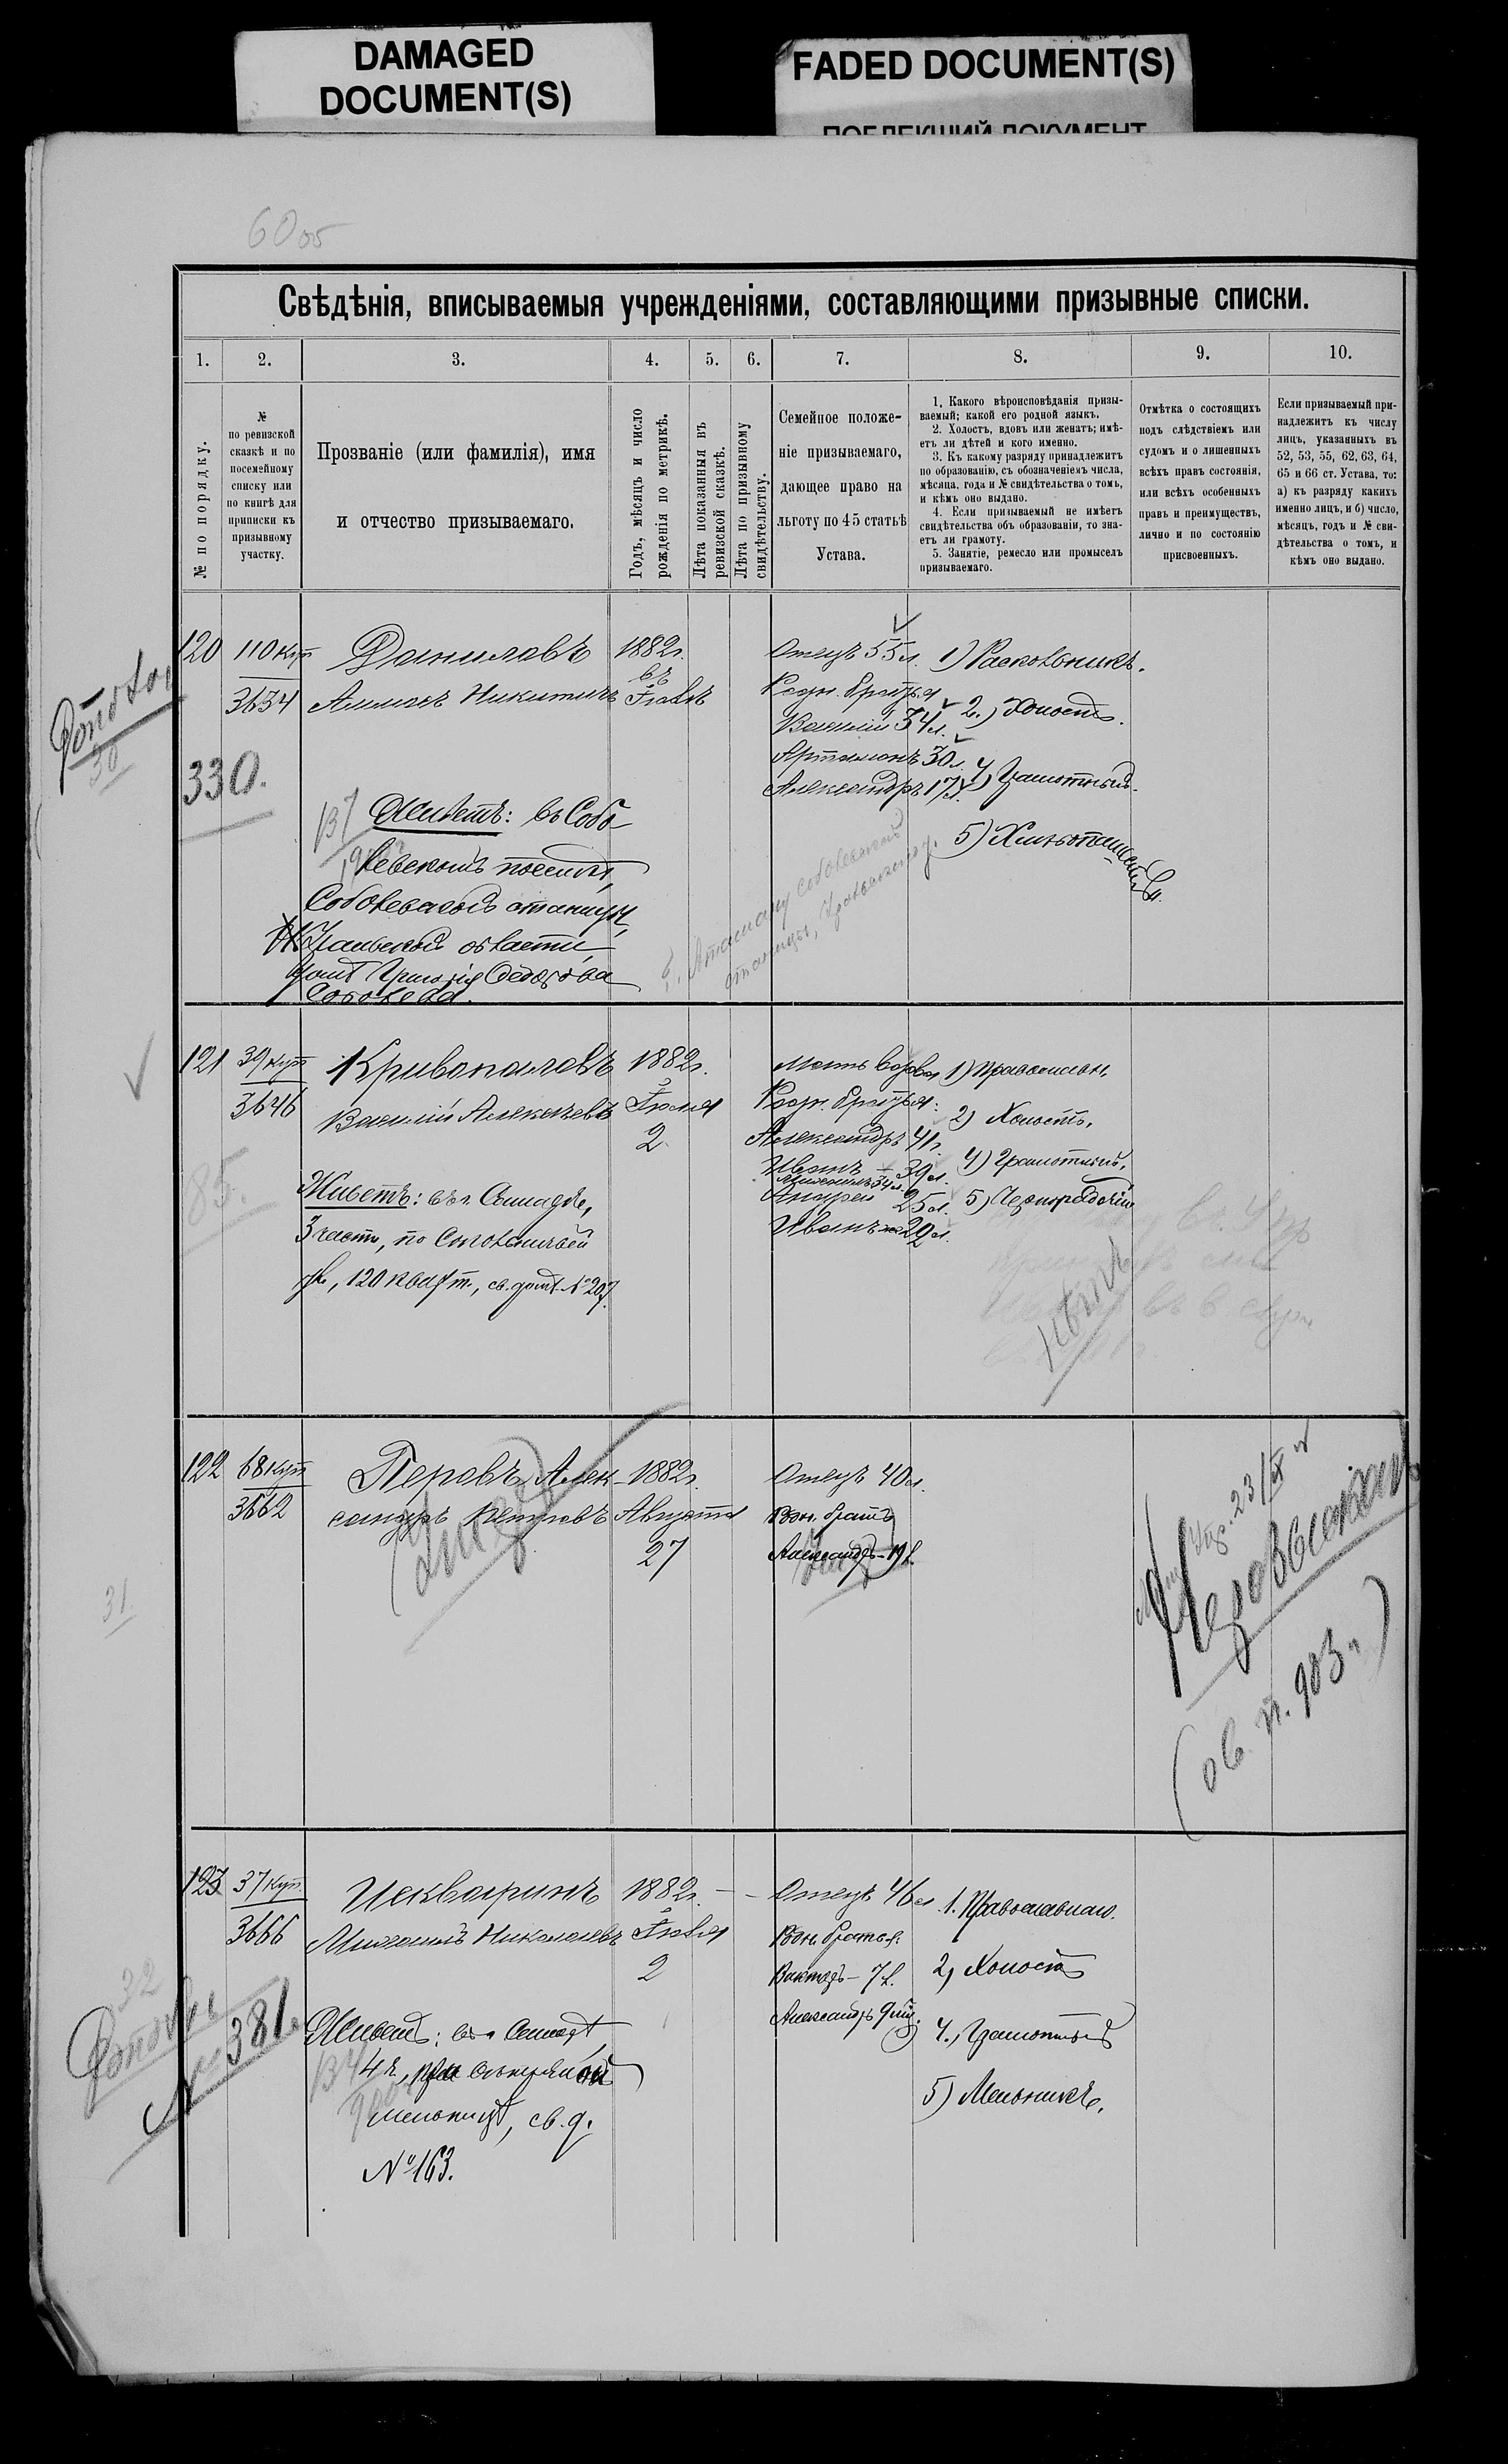 DAMAGED
DOCUMENT(S)
FADED DOCUMENT(S)
ПОБЛЕКШИЙ ДОКУМЕНТ
60 об
Свѣдѣнія, вписываемыя учрежденіями, составляющими призывные списки.
1.
2.
3.
4.
5.
6.
7.
8.
9.
10.
№ по порядку.
№
по ревизской
сказкѣ и по
посемейному
списку или
по книгѣ для
приписки къ
призывному
участку.
Прозваніе (или фамилія), имя
и отчество призываемаго.
Годъ, мѣсяцъ и число
рожденія по метрикѣ.
Лѣта показанныя въ
ревизской сказкѣ.
Лѣта по призывному
свидѣтельству.
Семейное положе-
ніе призываемаго,
дающее право на
льготу по 45 статьѣ
Устава.
1. Какого вѣроисповѣданія призы-
ваемый; какой его родной языкъ.
2. Холостъ, вдовъ или женатъ; имѣ-
етъ ли дѣтей и кого именно.
3. Къ какому разряду принадлежитъ
по образованію, съ обозначеніемъ числа,
мѣсяца, года и № свидѣтельства о томъ,
и кѣмъ оно выдано.
4. Если призываемый не имѣетъ
свидѣтельства объ образованіи, то зна-
етъ ли грамоту.
5. Занятіе, ремесло или промыселъ
призываемаго.
Отмѣтка о состоящихъ
подъ слѣдствіемъ или
судомъ и о лишенныхъ
всѣхъ правъ состоянія,
или всѣхъ особенныхъ
правъ и преимуществъ,
лично и по состоянію
присвоенныхъ.
Если призываемый при-
надлежитъ къ числу
лицъ, указанныхъ въ
52, 53, 55, 62, 63, 64,
65 и 66 ст. Устава, то:
а) къ разряду какихъ
именно лицъ, и б) число,
мѣсяцъ, годъ и № сви-
дѣтельства о томъ, и
кѣмъ оно выдано.
120
110 куп
3634
Даниловъ
Никитичъ
1882г.
въ
Іюлѣ
Отецъ 55 л.
Родн. братья
Василій 34 л.
Артамонъ 30 л.
Александръ 17 л.
1) Раскольникъ.
2.) Холостъ.
4) Грамотный.
5) Хлѣбопашество.
30
330.
Живетъ: въ Собо-
левскомъ поселкѣ,
Соболевской станицы,
Уральской области,
домъ Григорія Ѳедорова
Соболева.
Атаману Соболевской
станицы, Уральской
121
39 куп
3646
Кривопаловъ
Василій Алексѣевъ
1882г.
Іюля
2
Мать вдова
Родн. братья:
Александръ 41 г.
Иванъ 39 л.
Михаилъ 34 л.
Андрей 25 л.
Иванъ 29 л.
1) Православн.
2) Холостъ.
4) Грамотный.
5) Чернорабочій
85.
Живетъ: въ г. Самарѣ,
3 части, по Соловьиной
ул., 120 кварт., св. домъ №207.
122
68 куп
3662
Перовъ, Алек-
сандръ Петровъ
1882г.
Августа
27
Отецъ 40 л.
Родн. братъ
Александръ - 19 л.
23/IX
(ов. п. 903 г.)
31.
123
37 куп
3666
Исквиринъ
Михаилъ Николаевъ
1882г.
Іюля
2
Отецъ 46 л.
Родн. братья:
Викторъ - 7 л.
Александръ 9 мѣс.
1. Православнаго.
2) Холостъ
4.) Грамотный
5) Мельникъ.
32
№ 381.
Живетъ: въ г. Самарѣ
4 ч., при
мельницѣ, св. д.
№ 163.